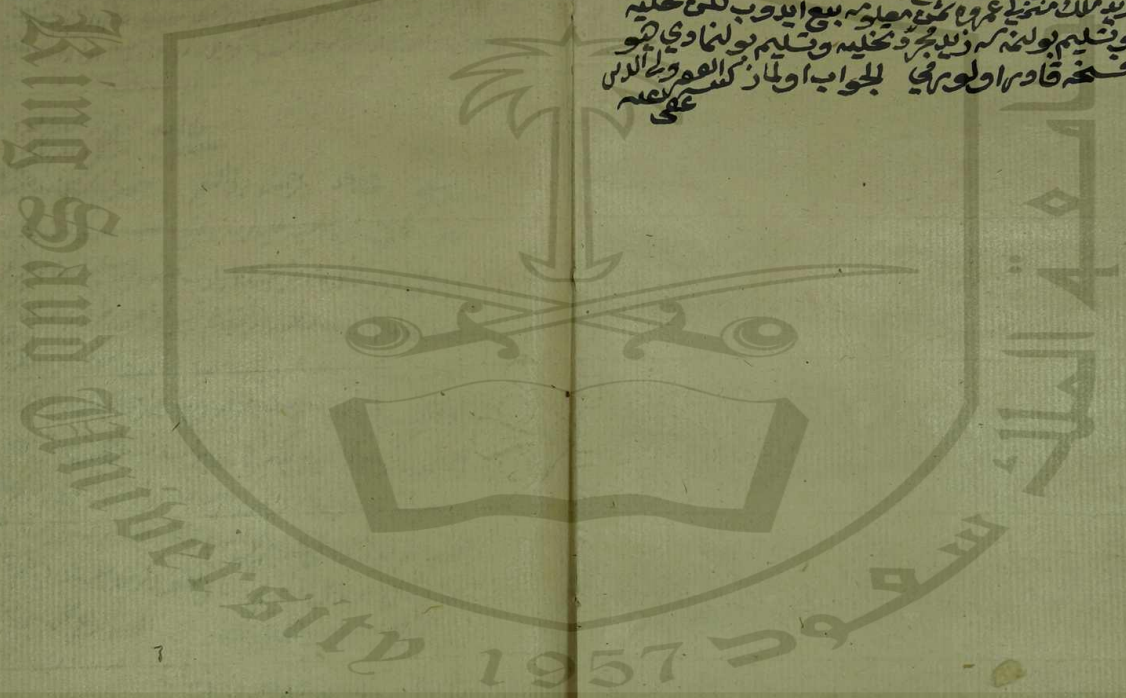 زيد ملك منزلي عمروه ثمن معلومه بيع ايدوب لكن تخليه
وتسليم بولنمسه زيد مجرد تخليه وتسليم بولنمادي ديو
فسخه قادر اولورمي الجواب اولماز كتبه الفقير
عفي عنه
King Saud University 1957
جامعة الملك سعود